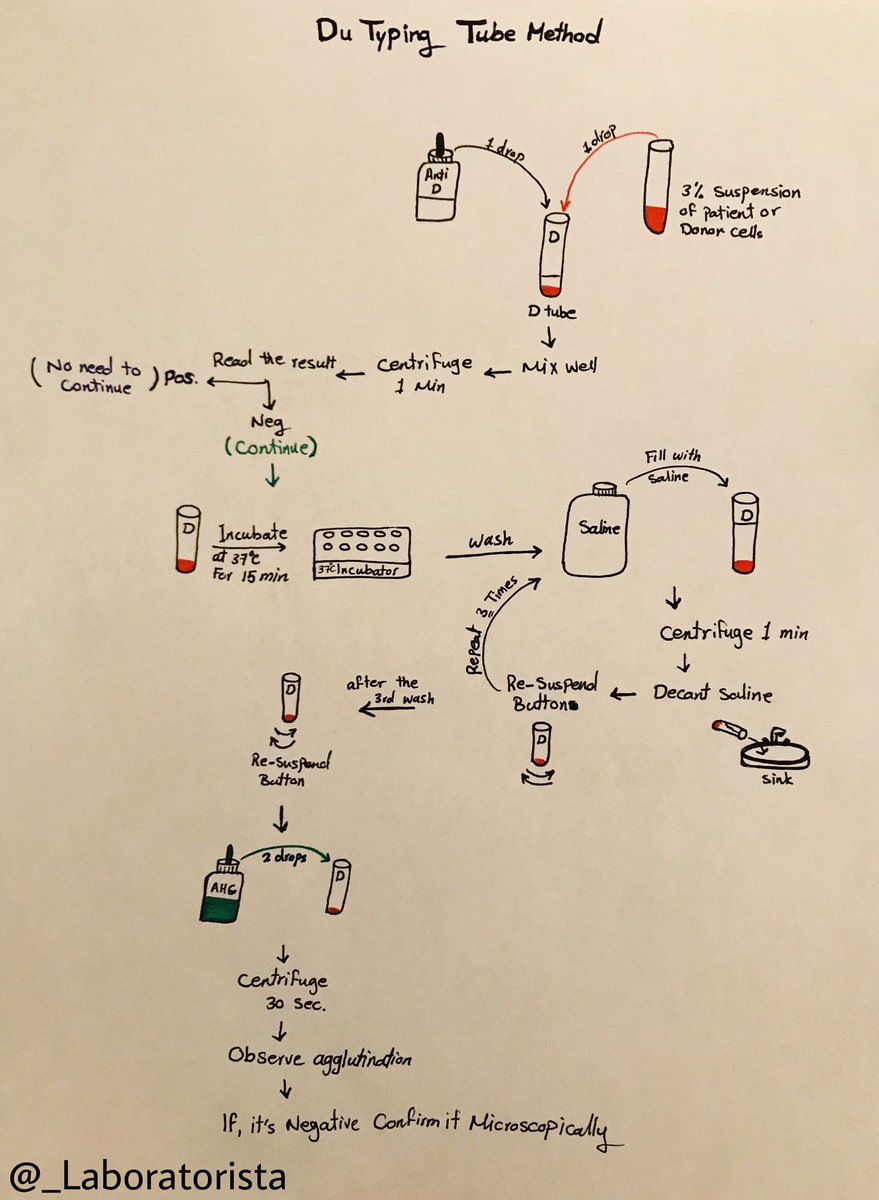 Du Typing Tube Method
1 drop
1 drop
Anti
D
3% Suspension
of patient or
Donor cells
D
D tube
Mix well
Centrifuge
1 Min
Read the result
Pos.
(No need to
Continue)
Neg
(Continue)
D
Incubate
at 37°c
For 15 min
37°c Incubator
wash
Saline
Fill with
Saline
D
Centrifuge 1 min
Decant Saline
Sink
Re-Suspend
Button
D
Repeat 3 Times
after the
3rd wash
D
Re-Suspend
Button
AHG
2 drops
D
Centrifuge
30 Sec.
Observe agglutination
If, it's Negative Confirm it Microscopically
@_Laboratorista